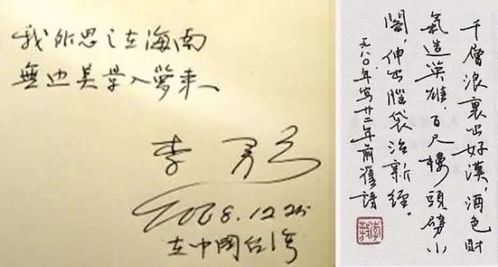 我所思之在海南
無边美景入夢来
李敖
2008.12.25
在中国台湾
千層浪裏出好漢,酒色財
氣造英雄,百尺樓頭劈小
閣,伸出腦袋治新經。
一九八〇年寫廿二年前舊詩